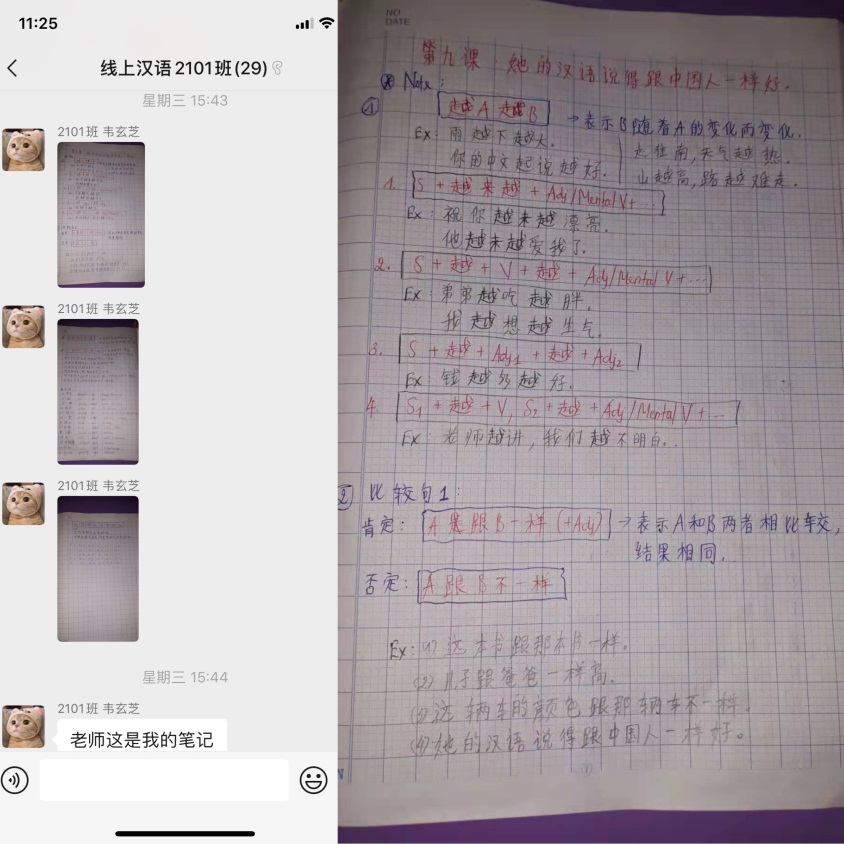 11:25
线上汉语2101班(29)
星期三 15:43
2101班 韦玄芝
2101班 韦玄芝
2101班 韦玄芝
星期三 15:44
2101班 韦玄芝
老师这是我的笔记
NO
DATE
第九课：她的汉语说得跟中国人一样好.
Note:
① 越A越B → 表示B随着A的变化而变化.
Ex: 雨越下越大.
你的中文起说越好.
走往南,天气越热.
山越高,路越难走.
1. S + 越来越 + Adj/Mental V + ...
Ex: 祝你越来越漂亮.
他越来越爱我了.
2. S + 越 + V + 越 + Adj/Mental V + ...
Ex: 弟弟越吃越胖.
我越想越生气.
3. S + 越 + Adj1 + 越 + Adj2
Ex: 钱越多越好.
4. S1 + 越 + V, S2 + 越 + Adj/Mental V + ...
Ex: 老师越讲,我们越不明白.
② 比较句1:
肯定: A 跟 B 一样 (+Adj) → 表示A和B两者相比较,
结果相同.
否定: A 跟 B 不一样
Ex: (1) 这本书跟那本书一样.
(2) 儿子跟爸爸一样高.
(3) 这辆车的颜色跟那辆车不一样.
(4) 她的汉语说得跟中国人一样好。